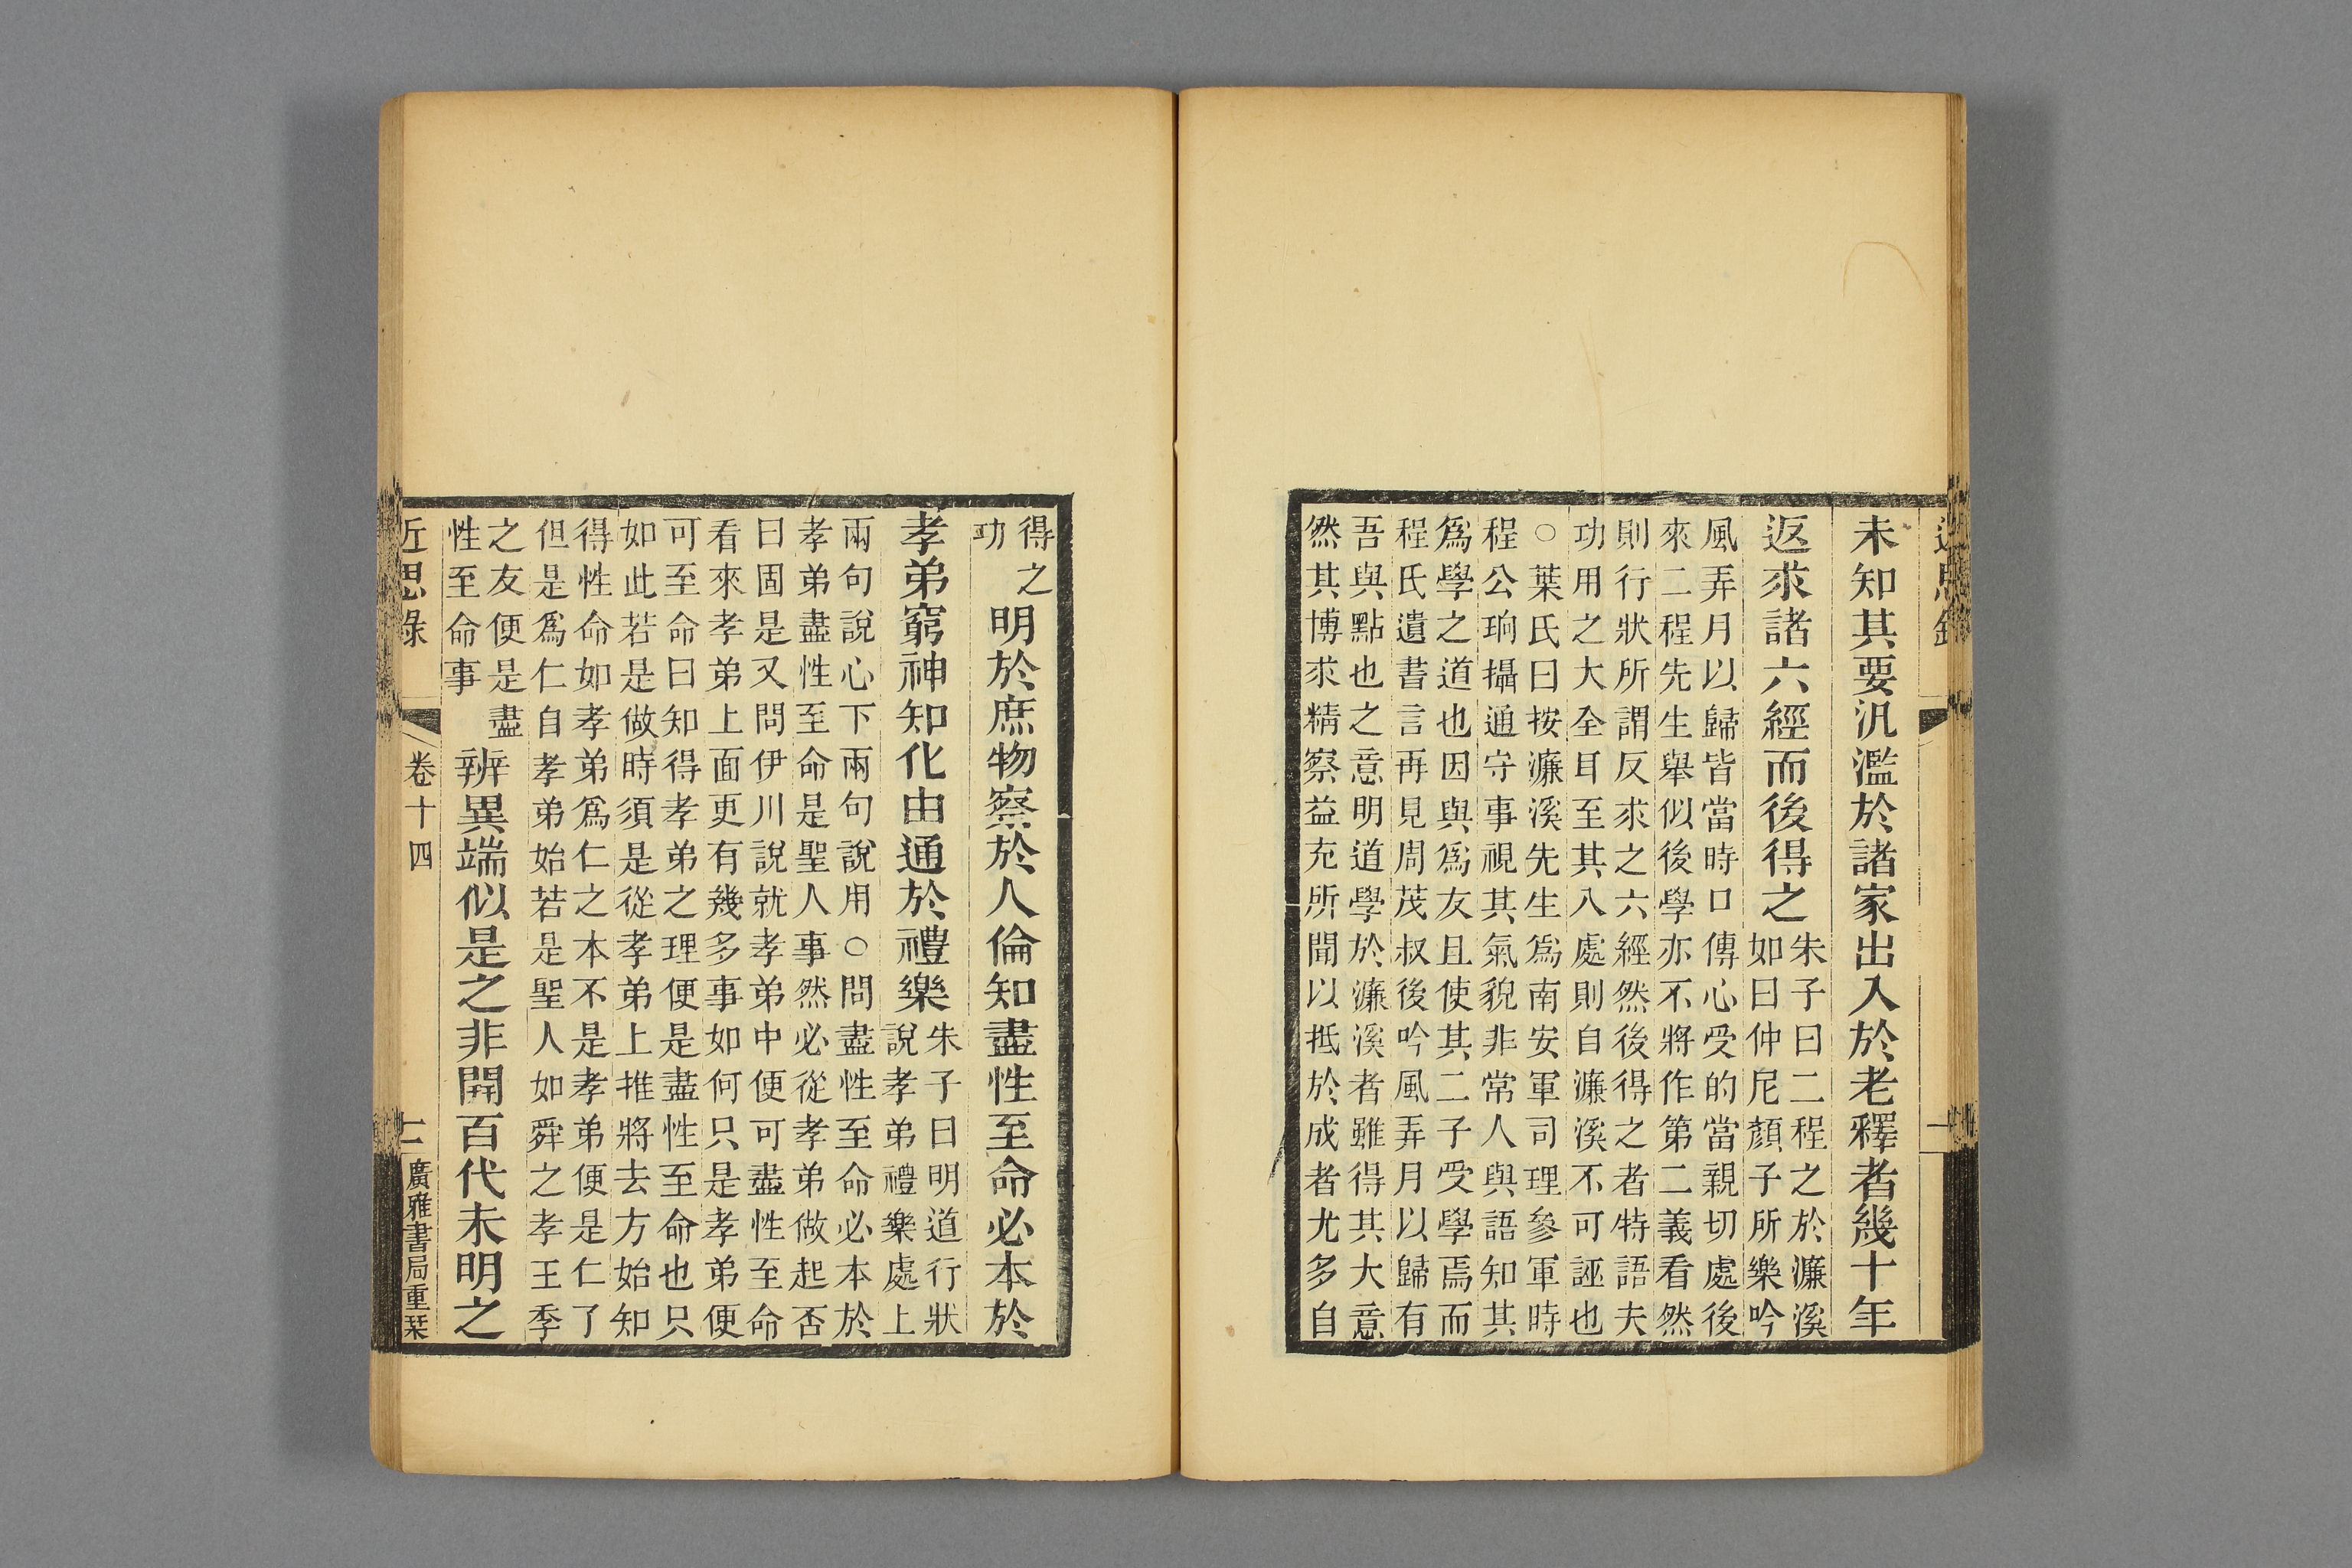 未知其要汎濫於諸家出入於老釋者幾十年
返求諸六經而後得之
朱子曰二程之於濂溪
如曰仲尼顏子所樂吟
風弄月以歸皆當時口傳心受的當親切處後
來二程先生舉似後學亦不將作第二義看然
則行狀所謂反求之六經然後得之者特語夫
功用之大全耳至其入處則自濂溪不可誣也
○葉氏曰按濂溪先生爲南安軍司理參軍時
程公珦攝通守事視其氣貌非常人與語知其
爲學之道也因與爲友且使其二子受學焉而
程氏遺書言再見周茂叔後吟風弄月以歸有
吾與點也之意明道學於濂溪者雖得其大意
然其博求精察益充所聞以抵於成者尤多自
得之
功
明於庶物察於人倫知盡性至命必本於
孝弟窮神知化由通於禮樂
朱子曰明道行狀
說孝弟禮樂處上
兩句說心下兩句說用○問盡性至命必本於
孝弟盡性至命是聖人事然必從孝弟做起否
曰固是又問伊川說就孝弟中便可盡性至命
看來孝弟上面更有幾多事如何只是孝弟便
可至命曰知得孝弟之理便是盡性至命也只
如此若是做時須是從孝弟上推將去方始知
得性命如孝弟爲仁之本不是孝弟便是仁了
但是爲仁自孝弟始若是聖人如舜之孝王季
之友便是盡
性至命事
辨異端似是之非開百代未明之
近思錄
卷十四
二
廣雅書局重栞